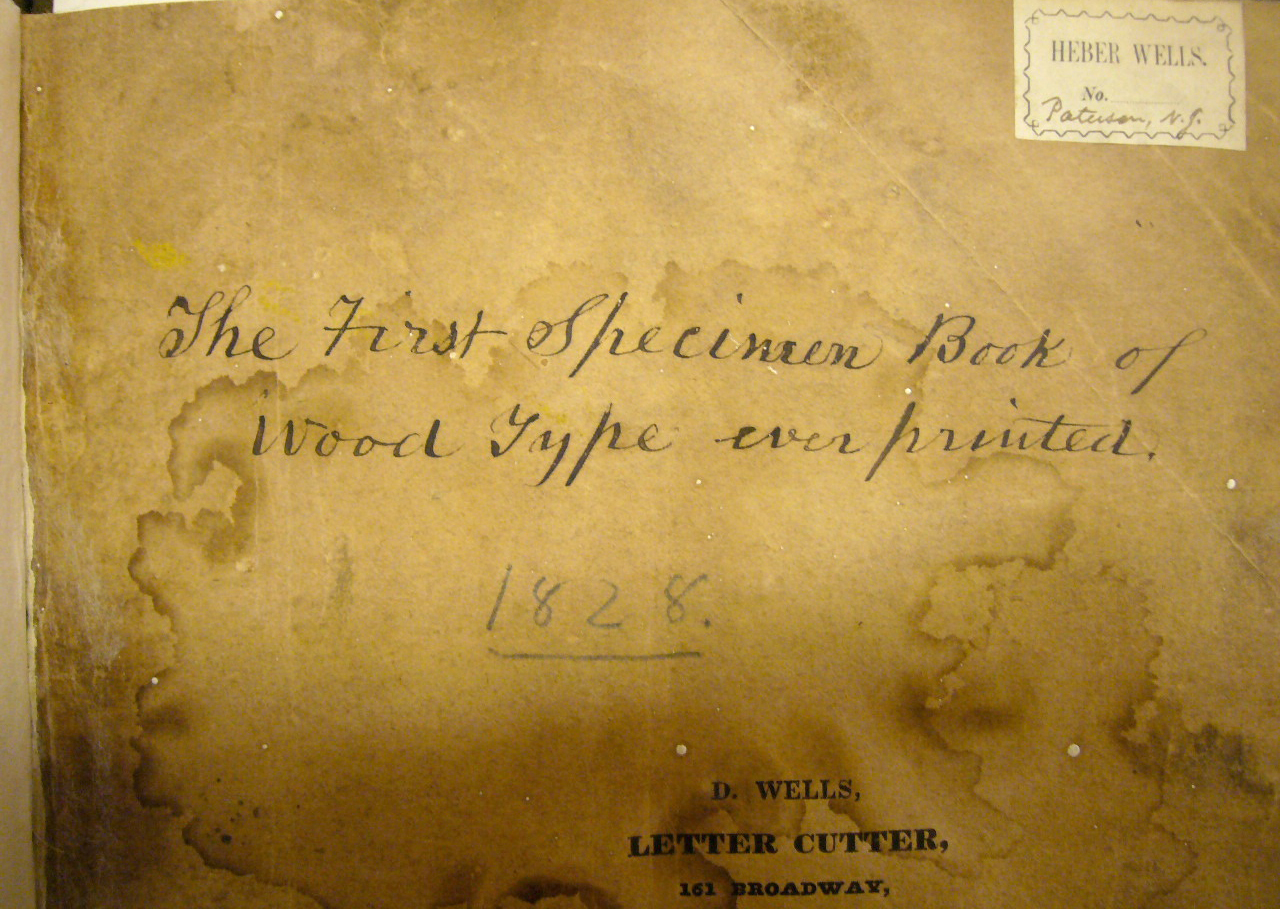 HEBER WELLS.
No.
Paterson, N.J.
The First Specimen Book of
Wood Type ever printed.
1828.
D. WELLS,
LETTER CUTTER,
161 BROADWAY,